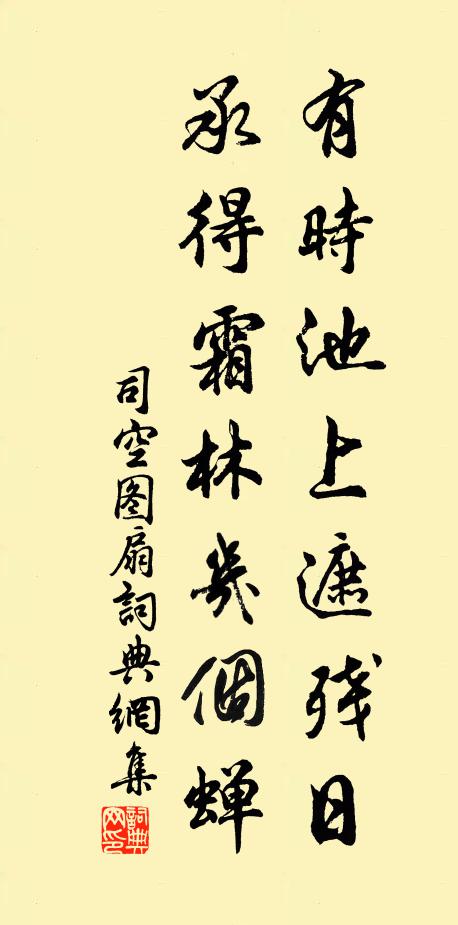 有時池上遮残日
承得霜林幾個蝉
司空图扇詞典網集
詞典网印